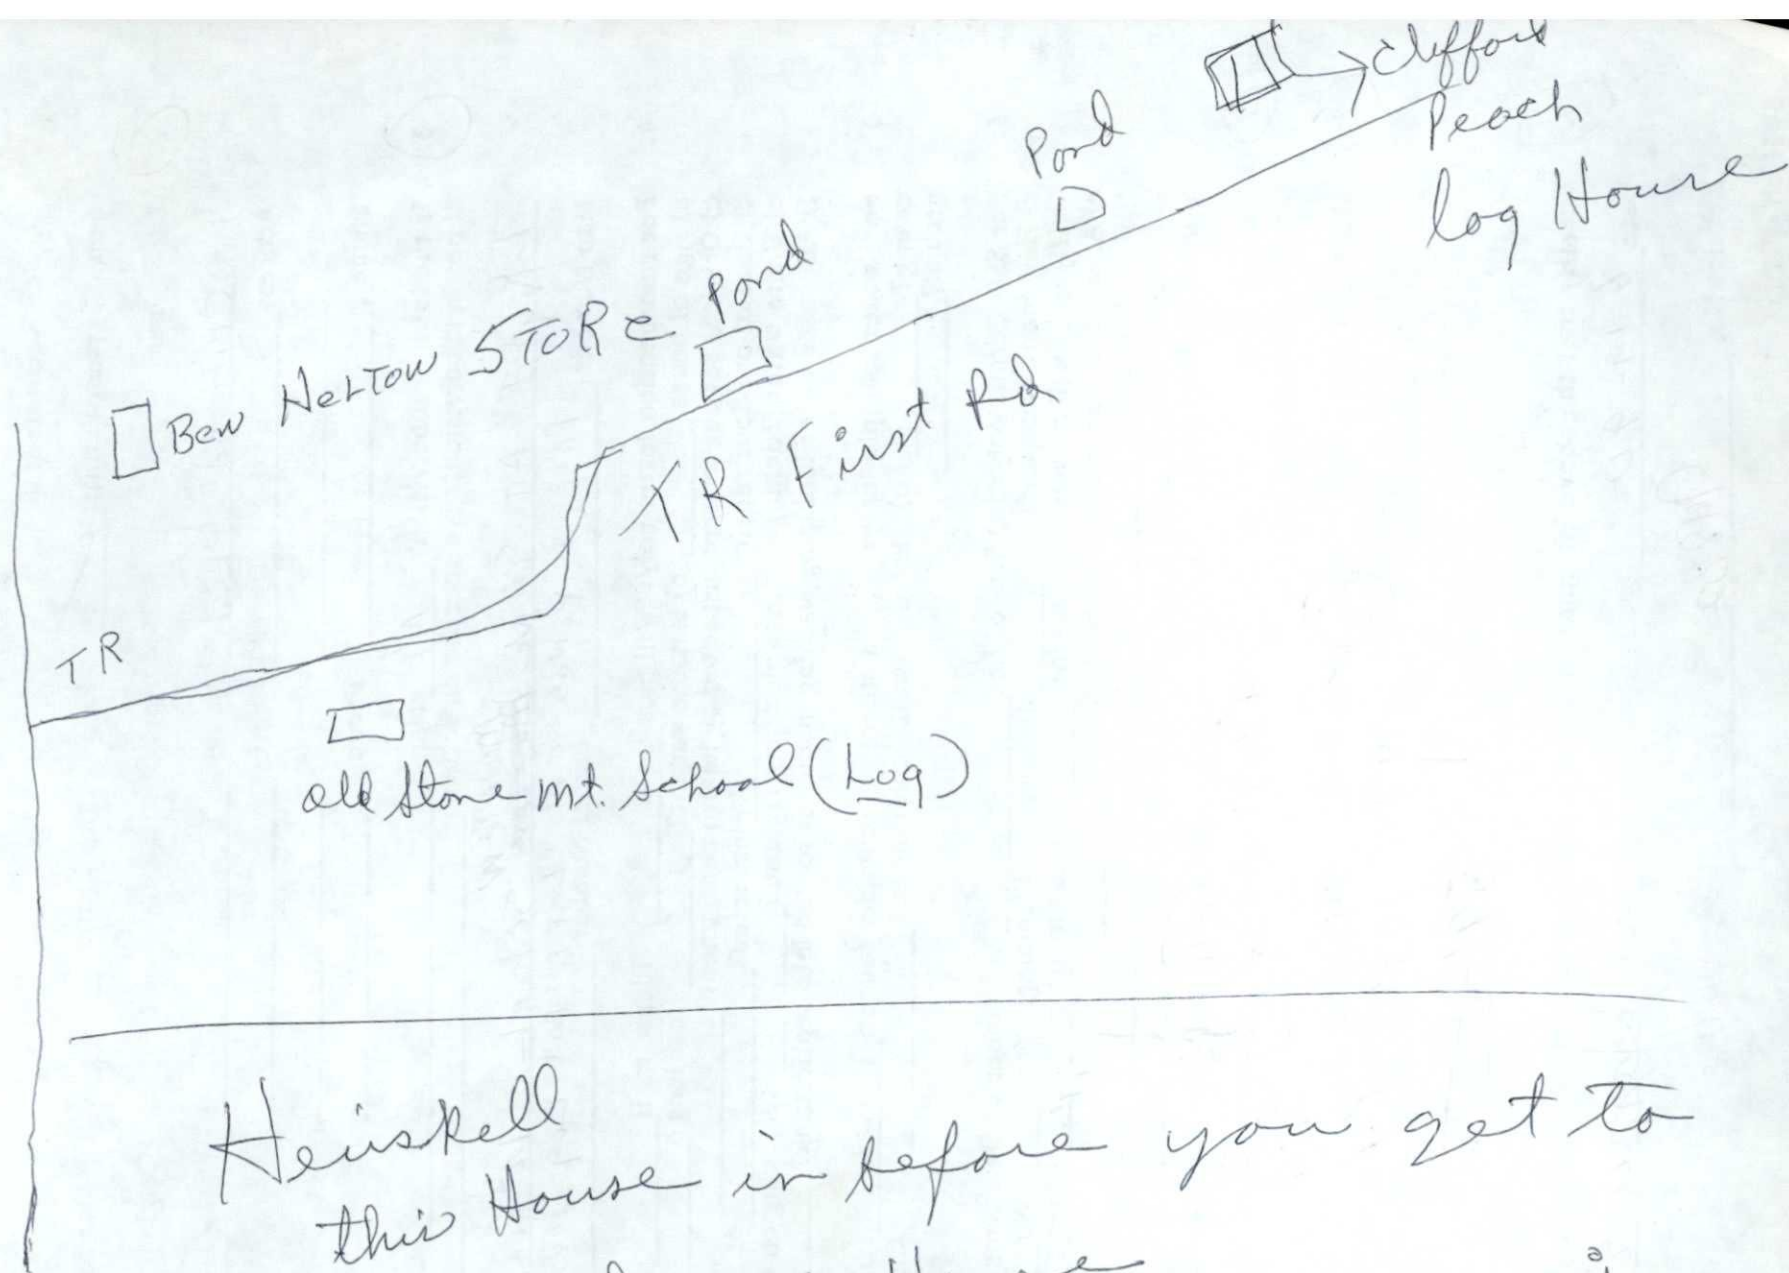 Clifford
Peach
log House
Pond
Pond
Ben Helton STORe
TR First Rd
TR
old Stone mt. School (Log)
Heiskell
this House in before you get to